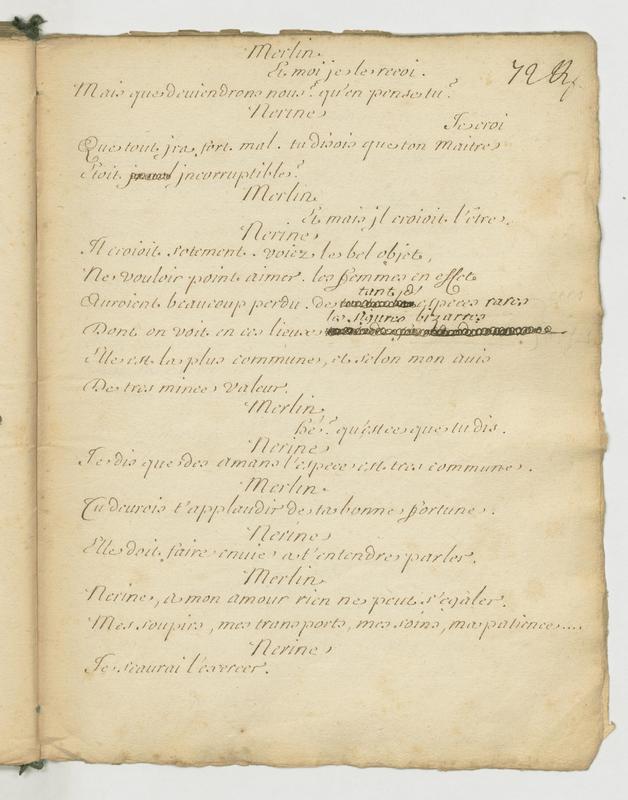 Merlin
Et moi je le recoi.
Mais que deviendrons nous? qu'en penses tu?
Nerine
Je croi
Que tout jra fort mal. tu disois que ton maitre
Etoit jncorruptible?
Merlin
Et mais jl croioit l'être.
Nerine
Il croioit sotement. voiez le bel objet,
Ne vouloir point aimer. les femmes en effet
tant d'
Auroient beaucoup perdu. De especes rares
les figures bizarres
Dont on voit en ces lieux
Elle est la plus commune, et selon mon avis
De tres mince valeur.
Merlin
hé? qu'est ce que tu dis.
Nerine
Je dis que des amans l'espece est tres commune.
Merlin
Tu devrois t'applaudir de ta bonne fortune.
Nerine
Elle doit faire envie a t'entendre parler.
Merlin
Nerine, a mon amour rien ne peut s'égàler.
Mes soupirs, mes transports, mes soins, ma patience....
Nerine
Je scaurai l'exercer.